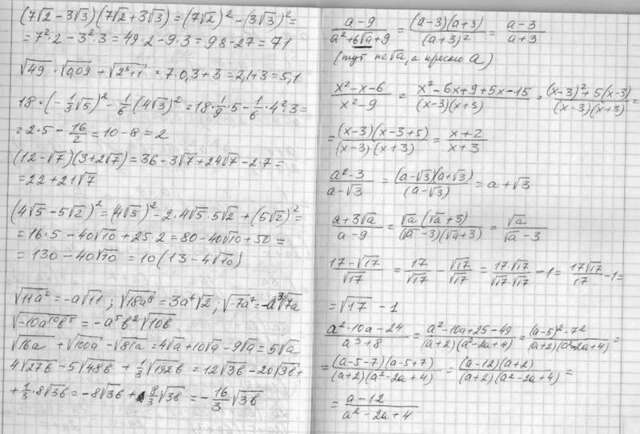 (7√2 - 3√3)(7√2 + 3√3) = (7√2)² - (3√3)² =
= 7²·2 - 3²·3 = 49·2 - 9·3 = 98 - 27 = 71
√49 · √0,09 + √(2³+1) = 7·0,3 + 3 = 2,1 + 3 = 5,1
18·(-1/3 √5)² - 1/6 (4√3)² = 18·1/9·5 - 1/6·4²·3 =
= 2·5 - 16/2 = 10 - 8 = 2
(12 - √7)(3 + 2√7) = 36 - 3√7 + 24√7 - 2·7 =
= 22 + 21√7
(4√5 - 5√2)² = (4√5)² - 2·4√5·5√2 + (5√2)² =
= 16·5 - 40√10 + 25·2 = 80 - 40√10 + 50 =
= 130 - 40√10 = 10(13 - 4√10)
√11a² = -a√11 ; √18a⁸ = 3a⁴√2 ; √-7a⁷ = -a³√7a
√-10a¹⁰b⁵ = -a⁵b²√10b
√16a + √100a - √81a = 4√a + 10√a - 9√a = 5√a
4√27b - 5√48b + 1/3 √192b = 12√3b - 20√3b +
+ 1/3 · 8√3b = -8√3b + 8/3 √3b = -16/3 √3b
(a-9)/(a²+6√a+9) = (a-3)(a+3)/(a+3)² = (a-3)/(a+3)
(тут не √a, а просто a)
(x²-x-6)/(x²-9) = (x²-6x+9+5x-15)/((x-3)(x+3)) = ((x-3)²+5(x-3))/((x-3)(x+3)) =
= ((x-3)(x-3+5))/((x-3)(x+3)) = (x+2)/(x+3)
(a²-3)/(a-√3) = ((a-√3)(a+√3))/(a-√3) = a+√3
(a+3√a)/(a-9) = (√a(√a+3))/((√a-3)(√a+3)) = √a/(√a-3)
(17-√17)/√17 = 17/√17 - √17/√17 = 17√17/(√17√17) - 1 = 17√17/17 - 1 =
= √17 - 1
(a²-10a-24)/(a³+8) = (a²-10a+25-49)/((a+2)(a²-2a+4)) = ((a-5)²-7²)/((a+2)(a²-2a+4)) =
= ((a-5-7)(a-5+7))/((a+2)(a²-2a+4)) = ((a-12)(a+2))/((a+2)(a²-2a+4)) =
= (a-12)/(a²-2a+4)